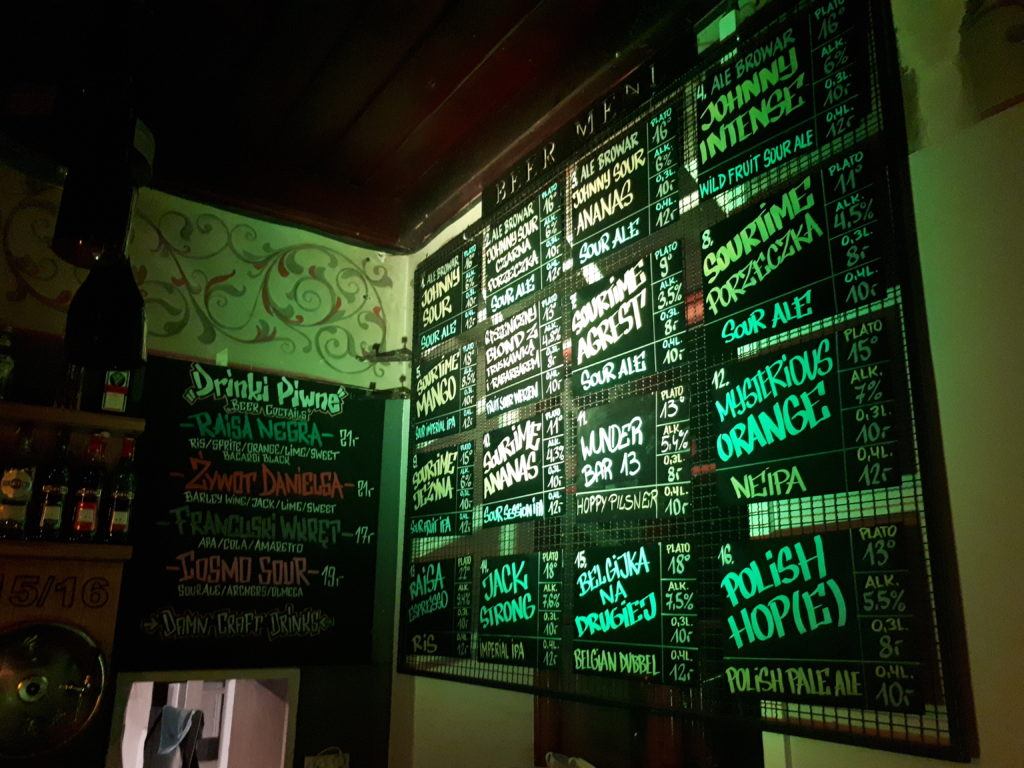 "Drinki Piwne"
BEER COCTAILS
RAISA NEGRA- 21,-
RIS/SPRITE/ORANGE/LIME/SWEET
BACARDI BLACK
ŻYWOT DANIELSA- 21,-
BARLEY WINE/JACK/LIME/SWEET
FRANCUSKI WKRĘT- 19,-
APA/COLA/AMARETTO
COSMO SOUR- 19,-
SOUR ALE/ARCHERS/OLMECA
DAMN CRAFT DRINKS
15/16
BEER MENU
ALE BROWAR
JOHNNY
SOUR
SOUR ALE
ALE BROWAR
JOHNNY SOUR
CZARNA
PORZECZKA
SOUR ALE
PLATO
16°
ALK.
6%
0,3L
10,-
0,4L
12,-
ALE BROWAR
JOHNNY SOUR
ANANAS
SOUR ALE
PLATO
16°
ALK.
6%
0,3L
10,-
0,4L
12,-
4. ALE BROWAR
JOHNNY
INTENSE
WILD FRUIT SOUR ALE
PLATO
16°
ALK.
6%
0,3L
10,-
0,4L
12,-
SOURTIME
MANGO
SOUR IMPERIAL IPA
PSZENICZNY
BLOND Z
TRUSKAWKĄ
I RABARBAREM
FRUIT SOUR WEIZEN
SOURTIME
AGREST
SOUR ALE
PLATO
9°
ALK.
3,5%
0,3L
8,-
0,4L
10,-
8.
SOURTIME
PORZECZKA
SOUR ALE
PLATO
11°
ALK.
4,5%
0,3L
8,-
0,4L
10,-
SOURTIME
JEŻYNA
SOUR FRUIT IPA
SOURTIME
ANANAS
SOUR SESSION IPA
11.
WUNDER
BAR 13
HOPPY PILSNER
PLATO
13°
ALK.
5,4%
0,3L
8,-
0,4L
10,-
12.
MYSTERIOUS
ORANGE
NEIPA
PLATO
15°
ALK.
7%
0,3L
10,-
0,4L
12,-
RAISA
ESPRESSO
RIS
14.
JACK
STRONG
IMPERIAL IPA
PLATO
18°
ALK.
7,6%
0,3L
10,-
0,4L
12,-
15.
BELGIJKA
NA
DRUGIEJ
BELGIAN DUBBEL
PLATO
18°
ALK.
7,5%
0,3L
10,-
0,4L
12,-
16.
POLISH
HOP(E)
POLISH PALE ALE
PLATO
13°
ALK.
5.5%
0,3L
8,-
0,4L
10,-